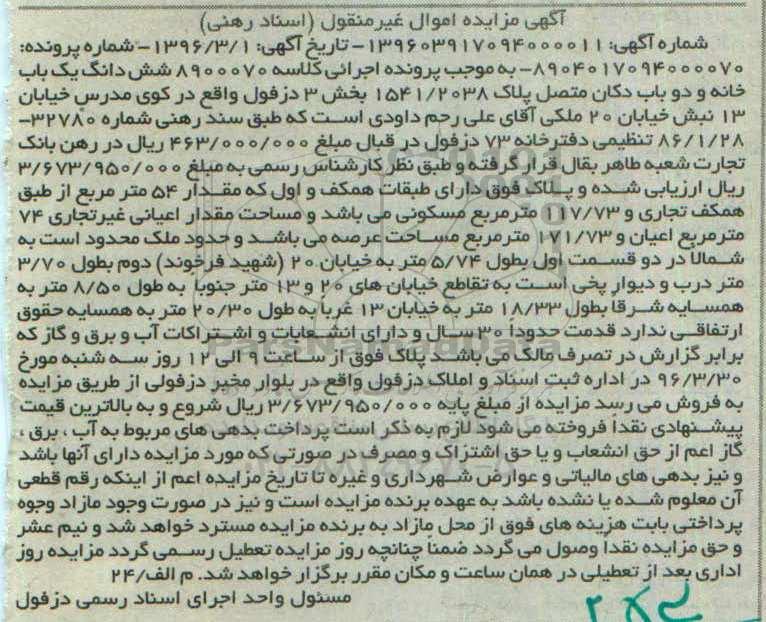 آگهی مزایده اموال غیرمنقول (اسناد رهنی)
شماره آگهی: ۱۳۹۶۰۳۹۱۷۰۹۴۰۰۰۰۱۱- تاریخ آگهی: ۱۳۹۶/۳/۱- شماره پرونده:
۸۹۰۴۰۱۷۰۹۴۰۰۰۰۷۰- به موجب پرونده اجرائی کلاسه ۸۹۰۰۰۷۰ شش دانگ یک باب
خانه و دو باب دکان متصل پلاک ۱۵۴۱/۲۰۳۸ بخش ۳ دزفول واقع در کوی مدرس خیابان
۱۳ نبش خیابان ۲۰ ملکی آقای علی رحم داودی است که طبق سند رهنی شماره ۳۲۷۸۰-
۸۶/۱/۲۸ تنظیمی دفترخانه ۷۳ دزفول در قبال مبلغ ۴۶۳/۰۰۰/۰۰۰ ریال در رهن بانک
تجارت شعبه طاهر بقال قرار گرفته و طبق نظر کارشناس رسمی به مبلغ ۳/۶۷۳/۹۵۰/۰۰۰
ریال ارزیابی شده و پلاک فوق دارای طبقات همکف و اول که مقدار ۵۴ متر مربع از طبق
همکف تجاری و ۱۱۷/۷۳ مترمربع مسکونی می باشد و مساحت مقدار اعیانی غیرتجاری ۷۴
مترمربع اعیان و ۱۷۱/۷۳ مترمربع مساحت عرصه می باشد و حدود ملک محدود است به
شمالا در دو قسمت اول بطول ۵/۷۴ متر به خیابان ۲۰ (شهید فرخوند) دوم بطول ۳/۷۰
متر درب و دیوار پخی است به تقاطع خیابان های ۲۰ و ۱۳ متر جنوبا به طول ۸/۵۰ متر به
همسایه شرقا بطول ۱۸/۳۳ متر به خیابان ۱۳ غرباً به طول ۲۰/۳۰ متر به همسایه حقوق
ارتفاقی ندارد قدمت حدوداً ۳۰ سال و دارای انشعابات و اشتراکات آب و برق و گاز که
برابر گزارش در تصرف مالک می باشد پلاک فوق از ساعت ۹ الی ۱۲ روز سه شنبه مورخ
۹۶/۳/۳۰ در اداره ثبت اسناد و املاک دزفول واقع در بلوار مخبر دزفولی از طریق مزایده
به فروش می رسد مزایده از مبلغ پایه ۳/۶۷۳/۹۵۰/۰۰۰ ریال شروع و به بالاترین قیمت
پیشنهادی نقداً فروخته می شود لازم به ذکر است پرداخت بدهی های مربوط به آب ، برق ،
گاز اعم از حق انشعاب و یا حق اشتراک و مصرف در صورتی که مورد مزایده دارای آنها باشد
و نیز بدهی های مالیاتی و عوارض شهرداری و غیره تا تاریخ مزایده اعم از اینکه رقم قطعی
آن معلوم شده یا نشده باشد به عهده برنده مزایده است و نیز در صورت وجود مازاد وجوه
پرداختی بابت هزینه های فوق از محل مازاد به برنده مزایده مسترد خواهد شد و نیم عشر
و حق مزایده نقداً وصول می گردد ضمناً چنانچه روز مزایده تعطیل رسمی گردد مزایده روز
اداری بعد از تعطیلی در همان ساعت و مکان مقرر برگزار خواهد شد. م الف/۲۴
مسئول واحد اجرای اسناد رسمی دزفول
ParsNamadData